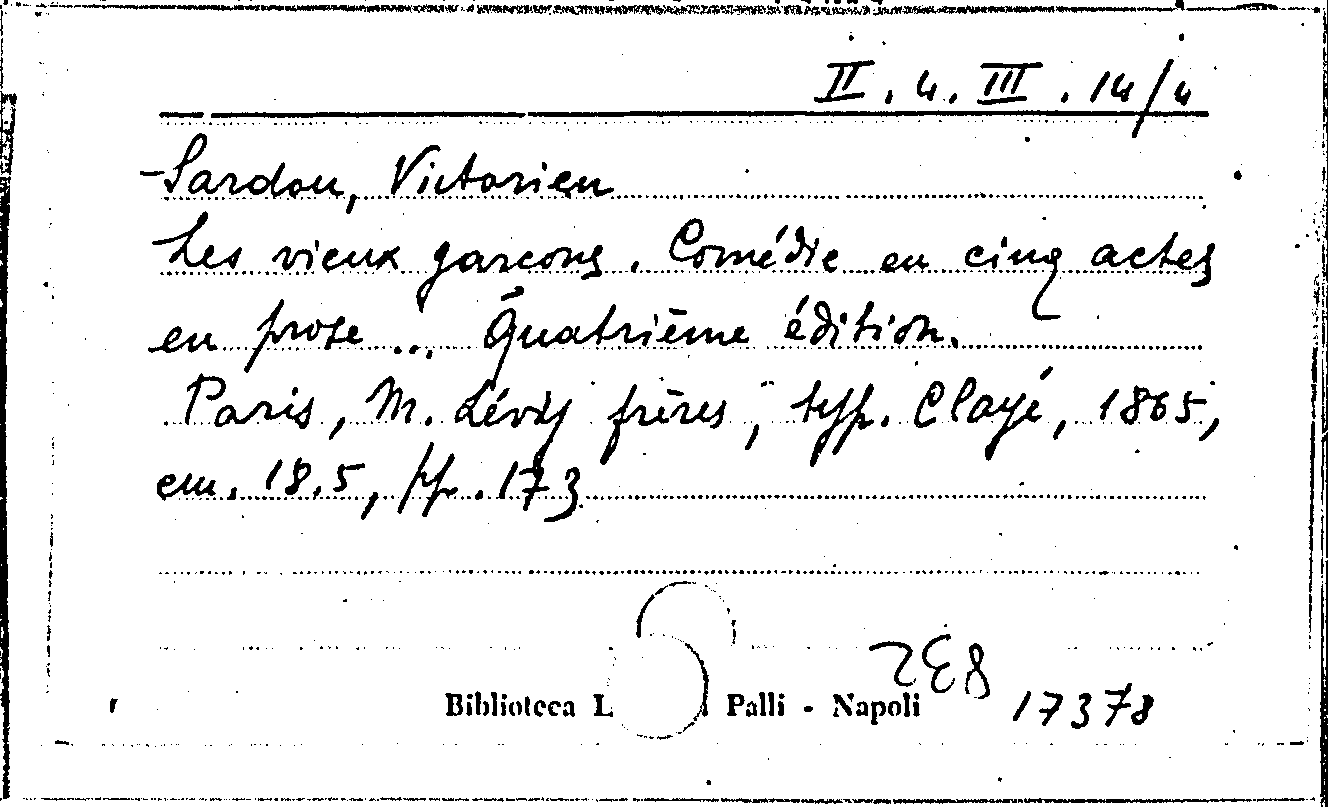 II. 4. III. 14/4
Sardou, Victorien
Les vieux garcons. Comédie en cinq actes
en prose ... Quatrième édition.
Paris, M. Lévy frères, typ. Clayé, 1865,
cm. 18.5, pp. 173
Biblioteca L Palli - Napoli
17378